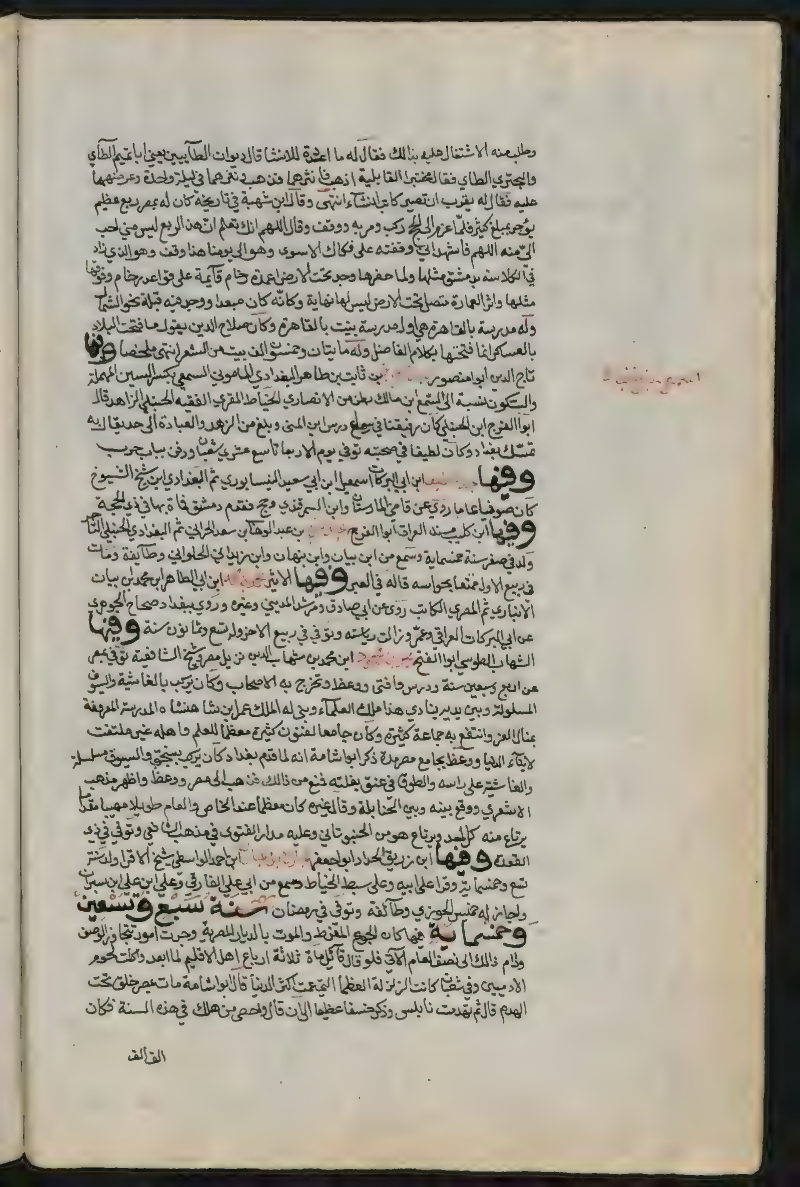 وطلب منه الاشتغال عليه بذالك فقال له ما اعددت للانشا قال ديوان الطآيين يعني ابا تميم الطآي
والبحتري الطاي فقال مختبرا القابلية اذهب فانثرهما فذهب نثرهما في ليلة واحدة وعرضهما
عليه فقال له يقرب ان تصير كاتب انشآء انتهى وقال ابن شهبة في تاريخه كان له بمصر ربع عظيم
يؤجر بمبلغ كثير فلما عزم الى الحج ركب ومر به ووقف وقال اللهم انك تعلم ان هذا الربع ليس شي احب
الي منه اللهم فاشهد اني وقفته على فكاك الاسرى وهو الى يومنا هذا وقف وهو الذي زاد
في الكلاسة بدمشق مثلها ولما حفرها وجد تحت الارض اعمدة رخام قآيمة على قواعد رخام وفوقها
مثلها واثر العمارة متصل تحت الارض ليس لها نهاية وكانه كان معبدا ووجد فيه قبلة نحو الشمال
وله مدرسة بالقاهرة هي اول مدرسة بنيت بالقاهرة وكان صلاح الدين يقول ما فتحت البلاد
بالعساكر انما فتحتها بكلام الفاضل وله مايتان وخمسون الف بيت من الشعر انتهى ملخصا وفيها
تاج الدين ابوا منصور بن ثابت بن طاهر البغدادي المأموني السمعي بكسر السين المهملة
والسكون نسبة الى السمع ابن مالك بطن من الانصاري الخياط المقري الفقيه الحنبلي الزاهد قال
ابوا الفرج ابن الحنبلي كان رفيقنا في سماع درس ابن المنى وبلغ من الزهد والعبادة الى حد يقال به
تمسك بغداد وكان لطيفا في صحبته توفي يوم الاربعا تاسع عشري شعبان ودفن بباب حرب
وفيها ابن ابي البركات اسمعيل ابن ابي سعيد النيسابوري ثم البغدادي ابن شيخ الشيوخ
كان صوفيا عاما روى عن قاضي المارستان وابن السمرقندي وحج فقدم دمشق فمات بها في ذي الحجة
وفيها ابن كليب مسند العراق ابوا الفرج بن عبد الوهاب ابن سعد الحراني ثم البغدادي الحنبلي التاجر
ولد في صفر سنة خمسماية وسمع من ابن بيان وابن نبهان وابن زيدان الحلواني وطآيفة ومات
في ربيع الاول ممتعا بحواسه قاله في العبر وفيها الاثير ابن ابي الطاهر ابن محمد بن بيان
الانباري ثم المصري الكاتب روى عن ابي صادق ومرشد المديني وغيره وروى ببغداد صحاح الجوهري
عن ابي البركات العراقي وعمر وزالت رياسته وتوفي في ربيع الاخر وله تسع وثمانون سنة وفيها
الشهاب الطوسي ابوا الفتح ابن محمد بن شهاب الدين نزيل مصر وشيخ الشافعية توفي بمصر
عن اربع وسبعين سنة ودرس وافتى ووعظ وتخرج به الاصحاب وكان يركب بالغاشية والسيوف
المسلولة وبين يديه ينادي هذا ملك العلمآء وبنى له الملك عمر ابن شاهنشاه المدرسة المعروفة
بمنازل العز وانتفع به جماعة كثيرة وكان جامعا لفنون كثيرة معظما للعلم واهله غير ملتفت
لابنآء الدنيا ووعظ بجامع مصر مدة ذكر ابوا شامة انه لما قدم بغداد كان يركب بسنجق والسيوف مسللة
والغاشية على راسه والطوق في عنق بغلته فمنع من ذالك فذهب الى مصر ووعظ واظهر مذهب
الاشعري ووقع بينه وبين الحنابلة وقال غيره كان معظما عند الخاص والعام طويلا مهيبا مقداما
يرتاع منه كل احد ويرتاع هو من الخبوشاني وعليه مدار الفتوى في مذهب الشافعي وتوفي في ذي
القعدة وفيها ابن زريق الحداد ابوا جعفر ابن احمد الواسطي شيخ الاقرا ولد سنة
تسع وخمسماية وقرا على ابيه وعلى سبط الخياط وسمع من ابي علي الفارقي وعلي ابن علي ابن شيران
واجاز له خميس الجوزي وطآيفة وتوفي في رمضان سنة سبع وتسعين
وخمسماية فيها كان الجوع المفرط والموت بالديار المصرية وجرت امور تتجاوز الوصف
ودام ذالك الى نصف العام الآتي فلو قال قآيل مات ثلاثة ارباع اهل الاقليم لما ابعد واكلت لحوم
الادميين وفي شعبان كانت الزلزلة العظما التي عمت اكثر الدنيا قال ابوا شامة مات بمصر خلق تحت
الهدم قال ثم تهدمت نابلس وذكر خسفا عظيما الى ان قال واحصي من هلك في هذه السنة فكان
الف الف